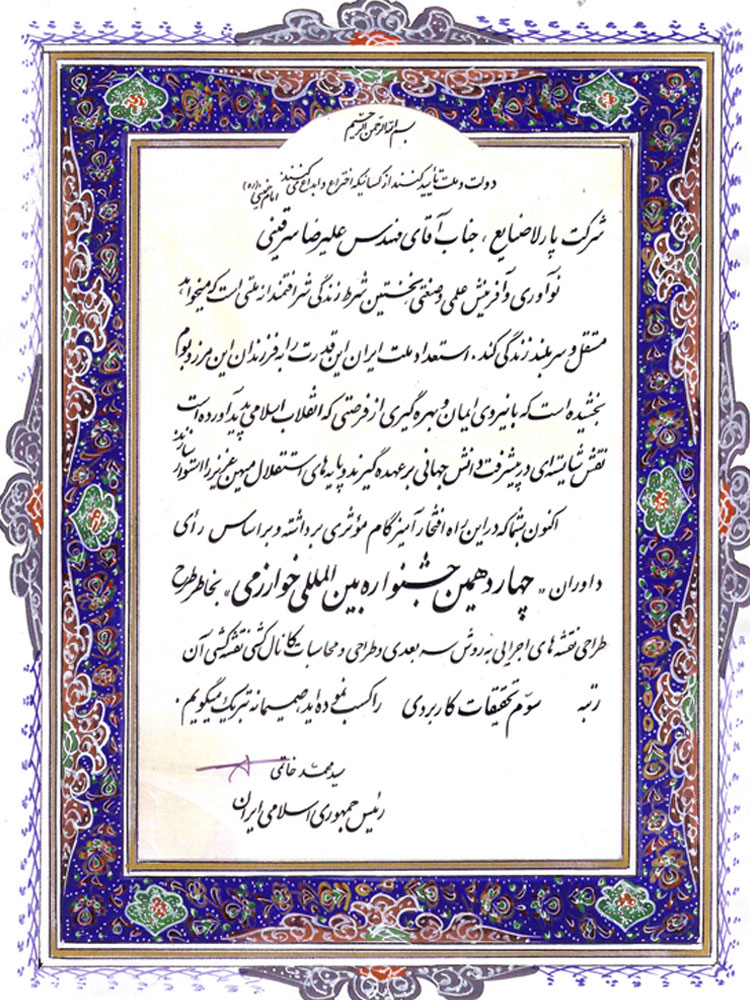 بسم الله الرحمن الرحیم
دولت و ملت تأیید کنند از کسانیکه اختراع و ابداع می کنند. امام خمینی (ره)
شرکت پارلا صنایع ، جناب آقای مهندس علیرضا سرقینی
نوآوری و آفرینش علمی و صنعتی نخستین شرط زندگی شرافتمندانه ملتی است که میخواهد
مستقل و سربلند زندگی کند . استعداد ملت ایران این قدرت را به فرزندان این مرز و بوم
بخشیده است که با نیروی ایمان و بهره گیری از فرصتی که انقلاب اسلامی پدید آورده است
نقش شایسته ای در پیشرفت دانش جهانی بر عهده گیرند و پایه های استقلال میهن عزیز را استوار سازند
اکنون بشما که در این راه افتخار آمیز گام مؤثری برداشته و بر اساس رأی
داوران « چهاردهمین جشنواره بین المللی خوارزمی » بخاطر طرح
طراحی نقشه های اجرایی به روش سه بعدی و طراحی و محاسبات کانال کشی نقشه کشی آن
رتبه سوّم تحقیقات کاربردی را کسب نموده اید، صمیمانه تبریک میگویم .
سید محمد خاتمی
رئیس جمهوری اسلامی ایران